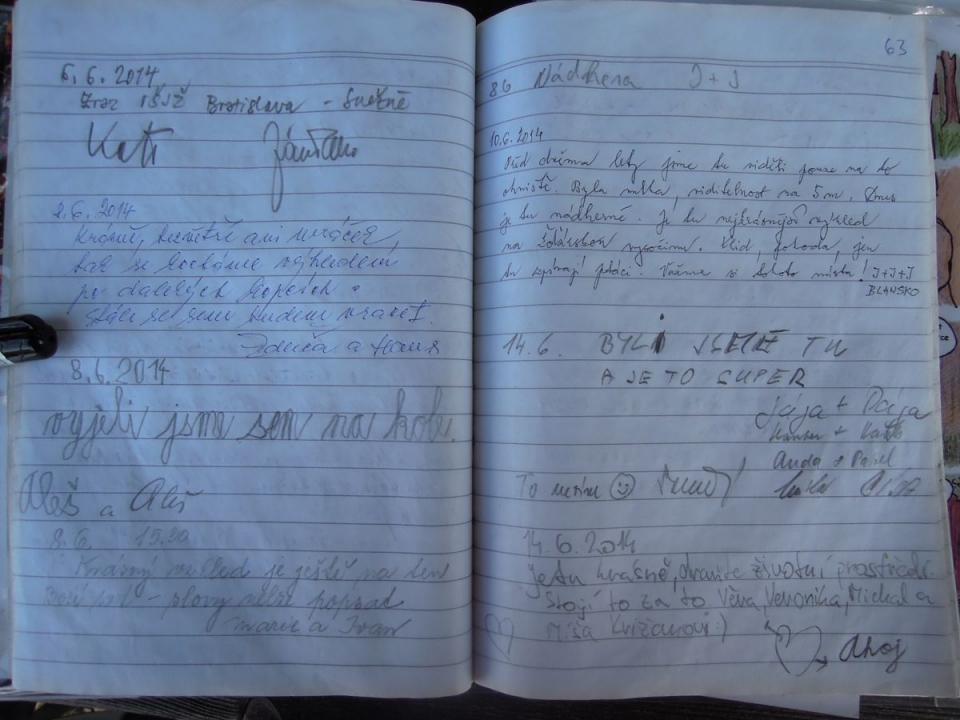 6.6.2014
Sraz IŠJŽ Bratislava - Sněžné
Kati
8.6.2014
Krásně, bezvětří ani mráček,
tak se kocháme výhledem
po dalekých kopcích.
Stále se sem budem vracet.
Zdena a Hans
8.6.2014
vyjeli jsme sem na kole.
Aleš a Aleš
8.6. 15.20
Krásný výhled je ještě na ten
- slovy nelze popsat
Marie a Ivan
63
8.6 Nádhera J+J
10.6.2014
Před dvěma lety jsme tu viděli pouze na to
ohniště. Byla mlha, viditelnost na 5m. Dnes
je tu nádherně. Je tu nejkrásnější výhled
na Žďárskou vysočinu. Klid, pohoda, jen
tu zpívají ptáci. Važme si tohoto místa! J+J+J
BLANSKO
14.6. BYLI JSME TU
A JE TO SUPER
Jája + Pája
Anda + Pavel
To nevím
14.6.2014
Je tu krásně, chraňte životní prostředí.
Stojí to za to Věva, Veronika, Michal a
Míša Křižanovi :)
Ahoj